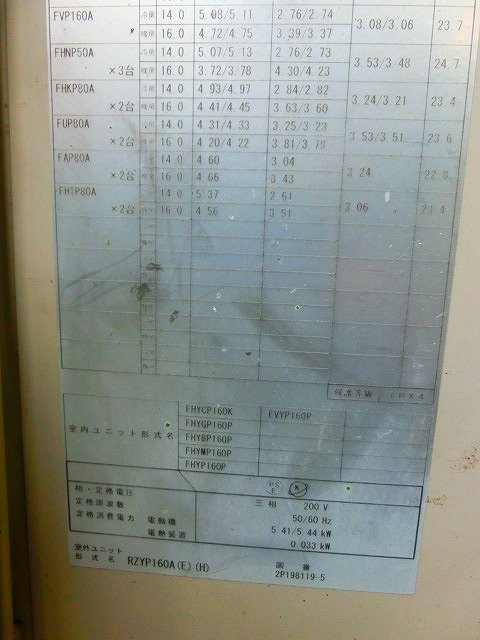 FVP160A 冷房 14.0 5.08/5.11 2.76/2.74 3.08/3.06 23.7
暖房 16.0 4.72/4.75 3.39/3.37
FHNP50A 冷房 14.0 5.07/5.13 2.76/2.73 3.53/3.48 24.7
×3台 暖房 16.0 3.72/3.78 4.30/4.23
FHKP80A 冷房 14.0 4.93/4.97 2.84/2.82 3.24/3.21 23.4
×2台 暖房 16.0 4.41/4.45 3.63/3.60
FUP80A 冷房 14.0 4.31/4.33 3.25/3.23 3.53/3.51 23.6
×2台 暖房 16.0 4.20/4.22 3.81/3.79
FAP80A 冷房 14.0 4.60 3.04 3.24 22.8
×2台 暖房 16.0 4.66 3.43
14.0 5.37 2.61 3.06 23.4
×2台 16.0 4.56 3.51
保護等級 IPX4
室内ユニット形式名
FHYCP160K FVYP160P
FHYGP160P
FHYBP160P
FHYMP160P
FHYP160P
PS E
相・定格電圧 三相 200 V
定格周波数 50/60 Hz
定格消費電力 電動機 5.41/5.44 kW
電熱装置 0.033 kW
室外ユニット
形式名 RZYP160A(E)(H)
図番
2P198119-5